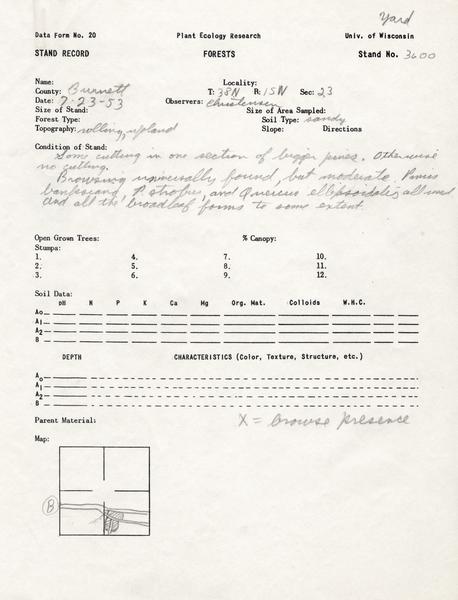 Yard
Data Form No. 20 Plant Ecology Research Univ. of Wisconsin
STAND RECORD FORESTS Stand No. 3600
Name: Locality:
County: Burnett T: 38N R: 15N Sec: 23
Date: 7-23-53 Observers: Christensen
Size of Stand: Size of Area Sampled:
Forest Type: Soil Type: sandy
Topography: rolling, upland Slope: Directions
Condition of Stand:
Some cutting in one section of bigger pines. Otherwise
no cutting.
Browsing universally found, but moderate. Pinus
banksiana, P. strobus, and Quercus ellipsoidalis all used
and all the broadleaf forms to some extent
Open Grown Trees: % Canopy:
Stumps:
1. 4. 7. 10.
2. 5. 8. 11.
3. 6. 9. 12.
Soil Data:
pH N P K Ca Mg Org. Mat. Colloids W.H.C.
Ao
A1
A2
B
DEPTH CHARACTERISTICS (Color, Texture, Structure, etc.)
Ao
A1
A2
B
Parent Material: X = browse presence
Map:
B